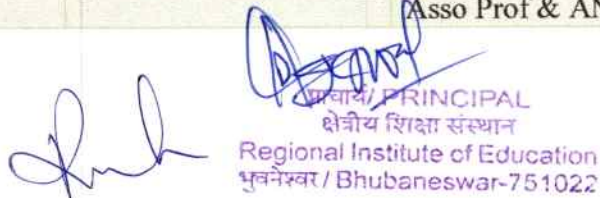 Asso Prof & AN
प्राचार्य/ PRINCIPAL
क्षेत्रीय शिक्षा संस्थान
Regional Institute of Education
भुवनेश्वर / Bhubaneswar-751022